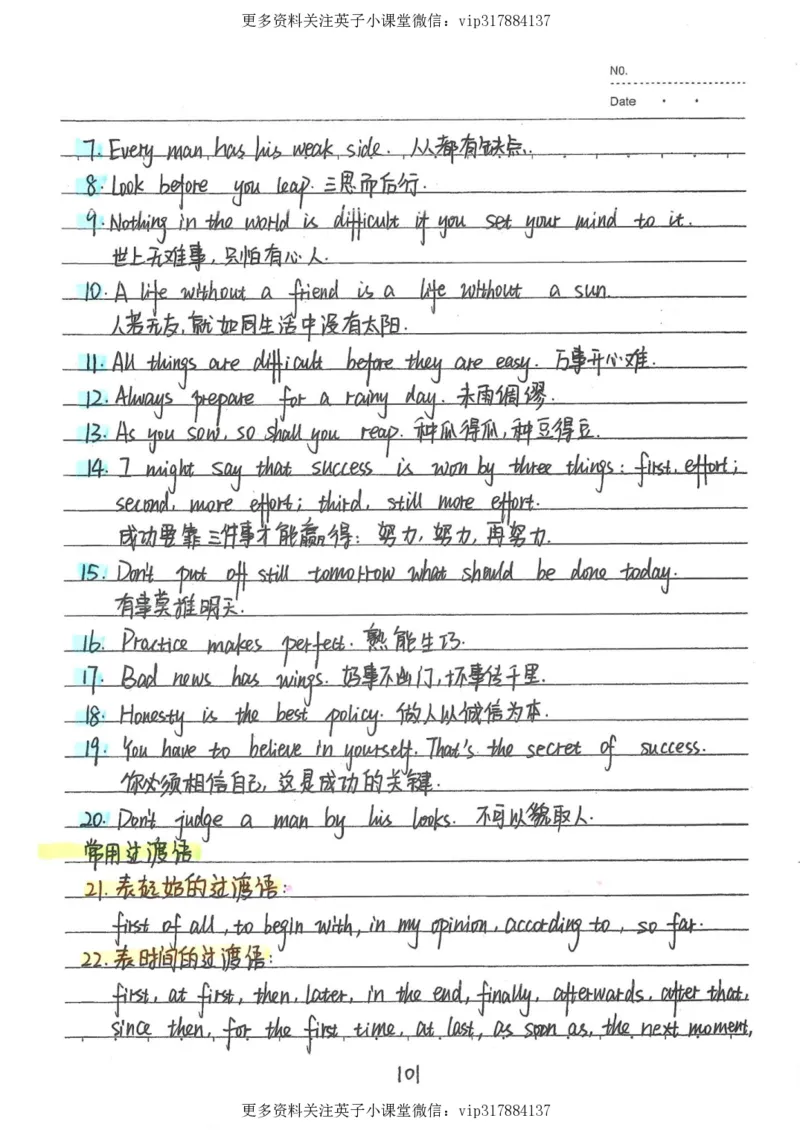 更多资料关注英子小课堂微信：vip317884137
N0.
Date
7. Every man has his weak side. 人人都有缺点.
8. Look before you leap. 三思而后行.
9. Nothing in the world is difficult if you set your mind to it.
世上无难事，只怕有心人.
10. A life without a friend is a life without a sun.
人若无友，就如同生活中没有太阳.
11. All things are difficult before they are easy. 万事开心难.
12. Always prepare for a rainy day. 未雨绸缪.
13. As you sow, so shall you reap. 种瓜得瓜，种豆得豆.
14. I might say that success is won by three things: first, effort;
second, more effort; third, still more effort.
成功要靠三件事才能赢得：努力，努力，再努力.
15. Don't put off still tomorrow what should be done today.
有事莫推明天.
16. Practice makes perfect. 熟能生巧.
17. Bad news has wings. 好事不出门，坏事传千里.
18. Honesty is the best policy. 做人以诚信为本.
19. You have to believe in yourself. That's the secret of success.
你必须相信自己，这是成功的关键.
20. Don't judge a man by his looks. 不可以貌取人.
常用过渡语
21. 表起始的过渡语：
first of all, to begin with, in my opinion, according to, so far.
22. 表时间的过渡语：
first, at first, then, later, in the end, finally, afterwards, after that,
since then, for the first time, at last, as soon as, the next moment,
101
更多资料关注英子小课堂微信：vip317884137